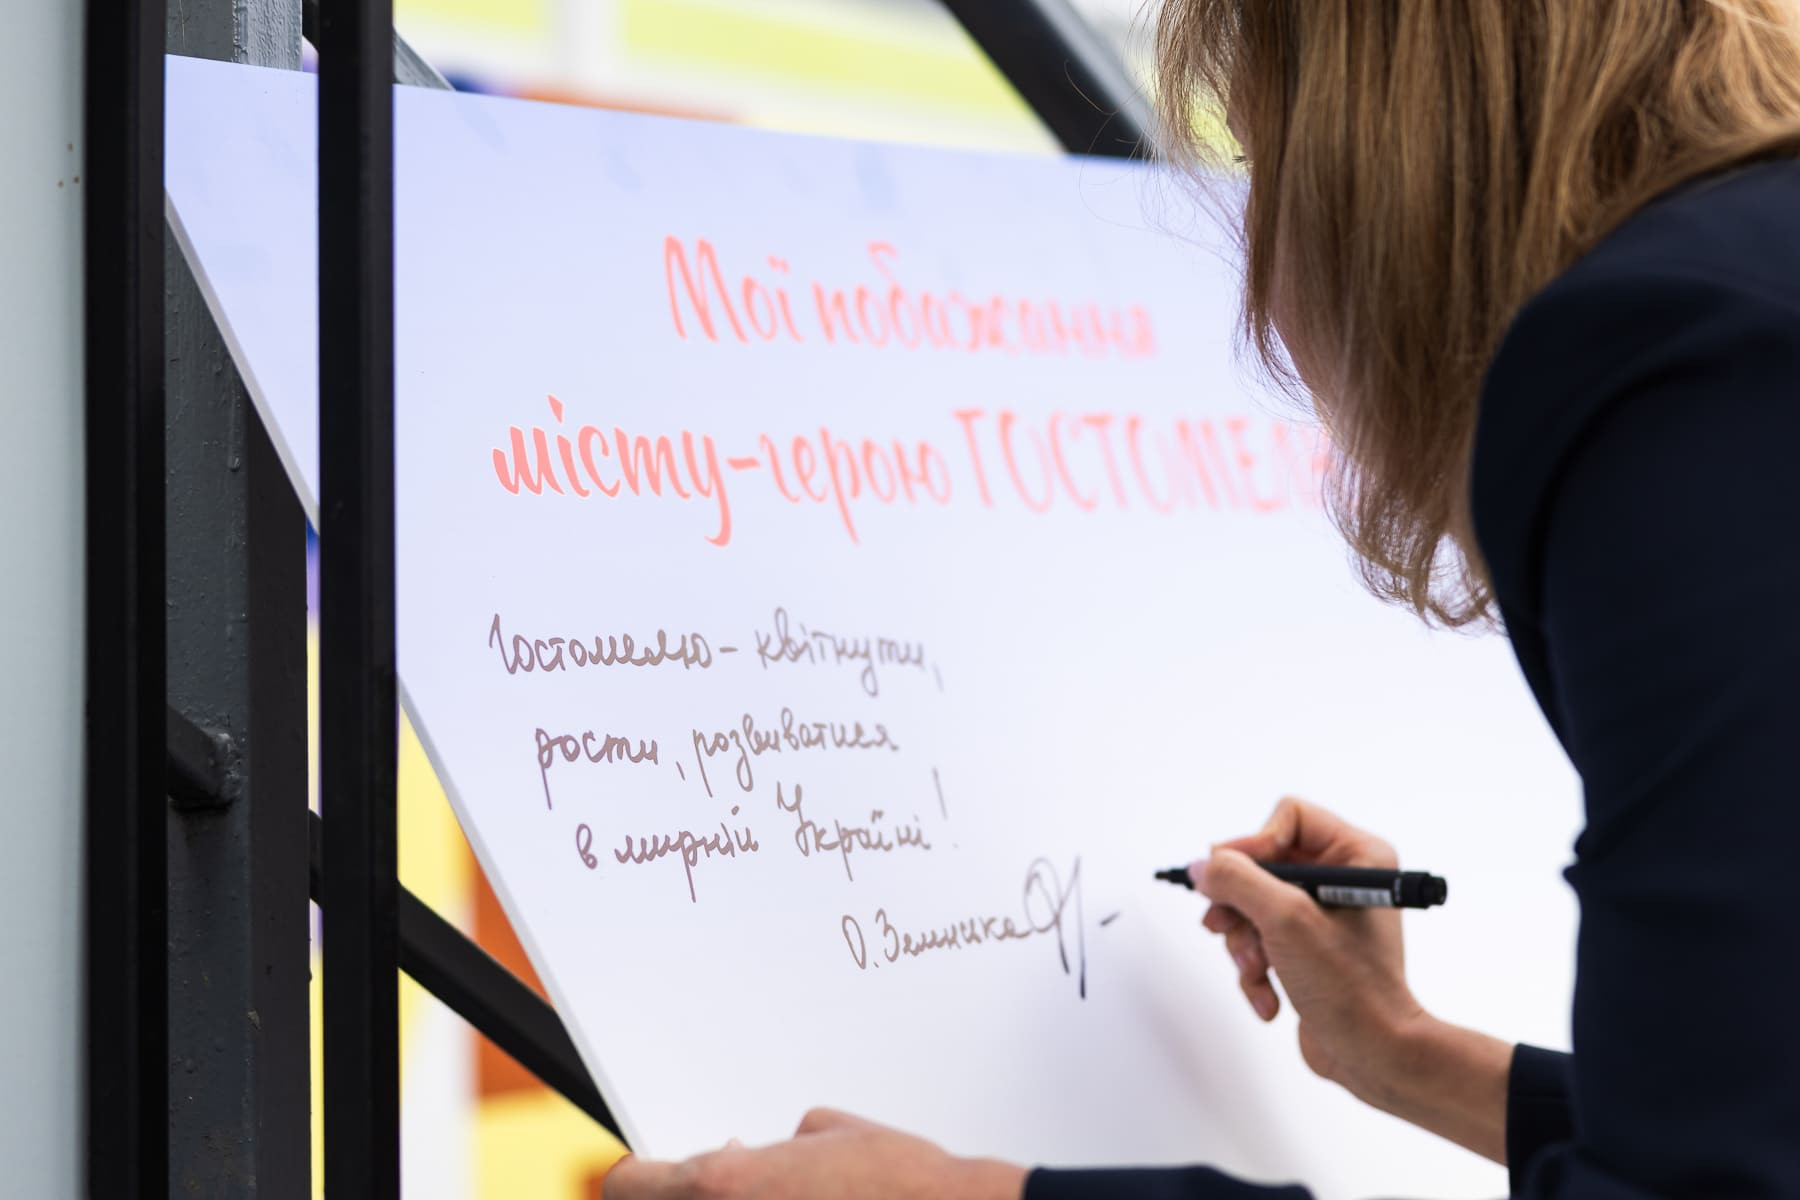 Мої побажання
місту-герою ГОСТОМЕЛЮ
Гостомелю - квітнути,
рости, розвиватися
в мирній Україні!
О. Земника